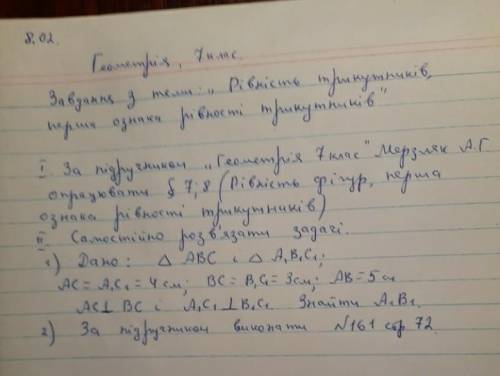 8.02.
Геометрія, 7 клас.
Завдання з теми: „Рівність трикутників,
перша ознака рівності трикутників"
I. За підручником „Геометрія 7 клас" Мерзляк А.Г
опрацювати § 7; 8 (Рівність фігур, перша
ознака рівності трикутників)
II. Самостійно розв'язати задачі.
1) Дано: △ ABC і △ A₁B₁C₁;
AC = A₁C₁ = 4 см; BC = B₁C₁ = 3 см; AB = 5 см
AC ⊥ BC і A₁C₁ ⊥ B₁C₁ Знайти A₁B₁.
2) За підручником виконати №161 стор 72.